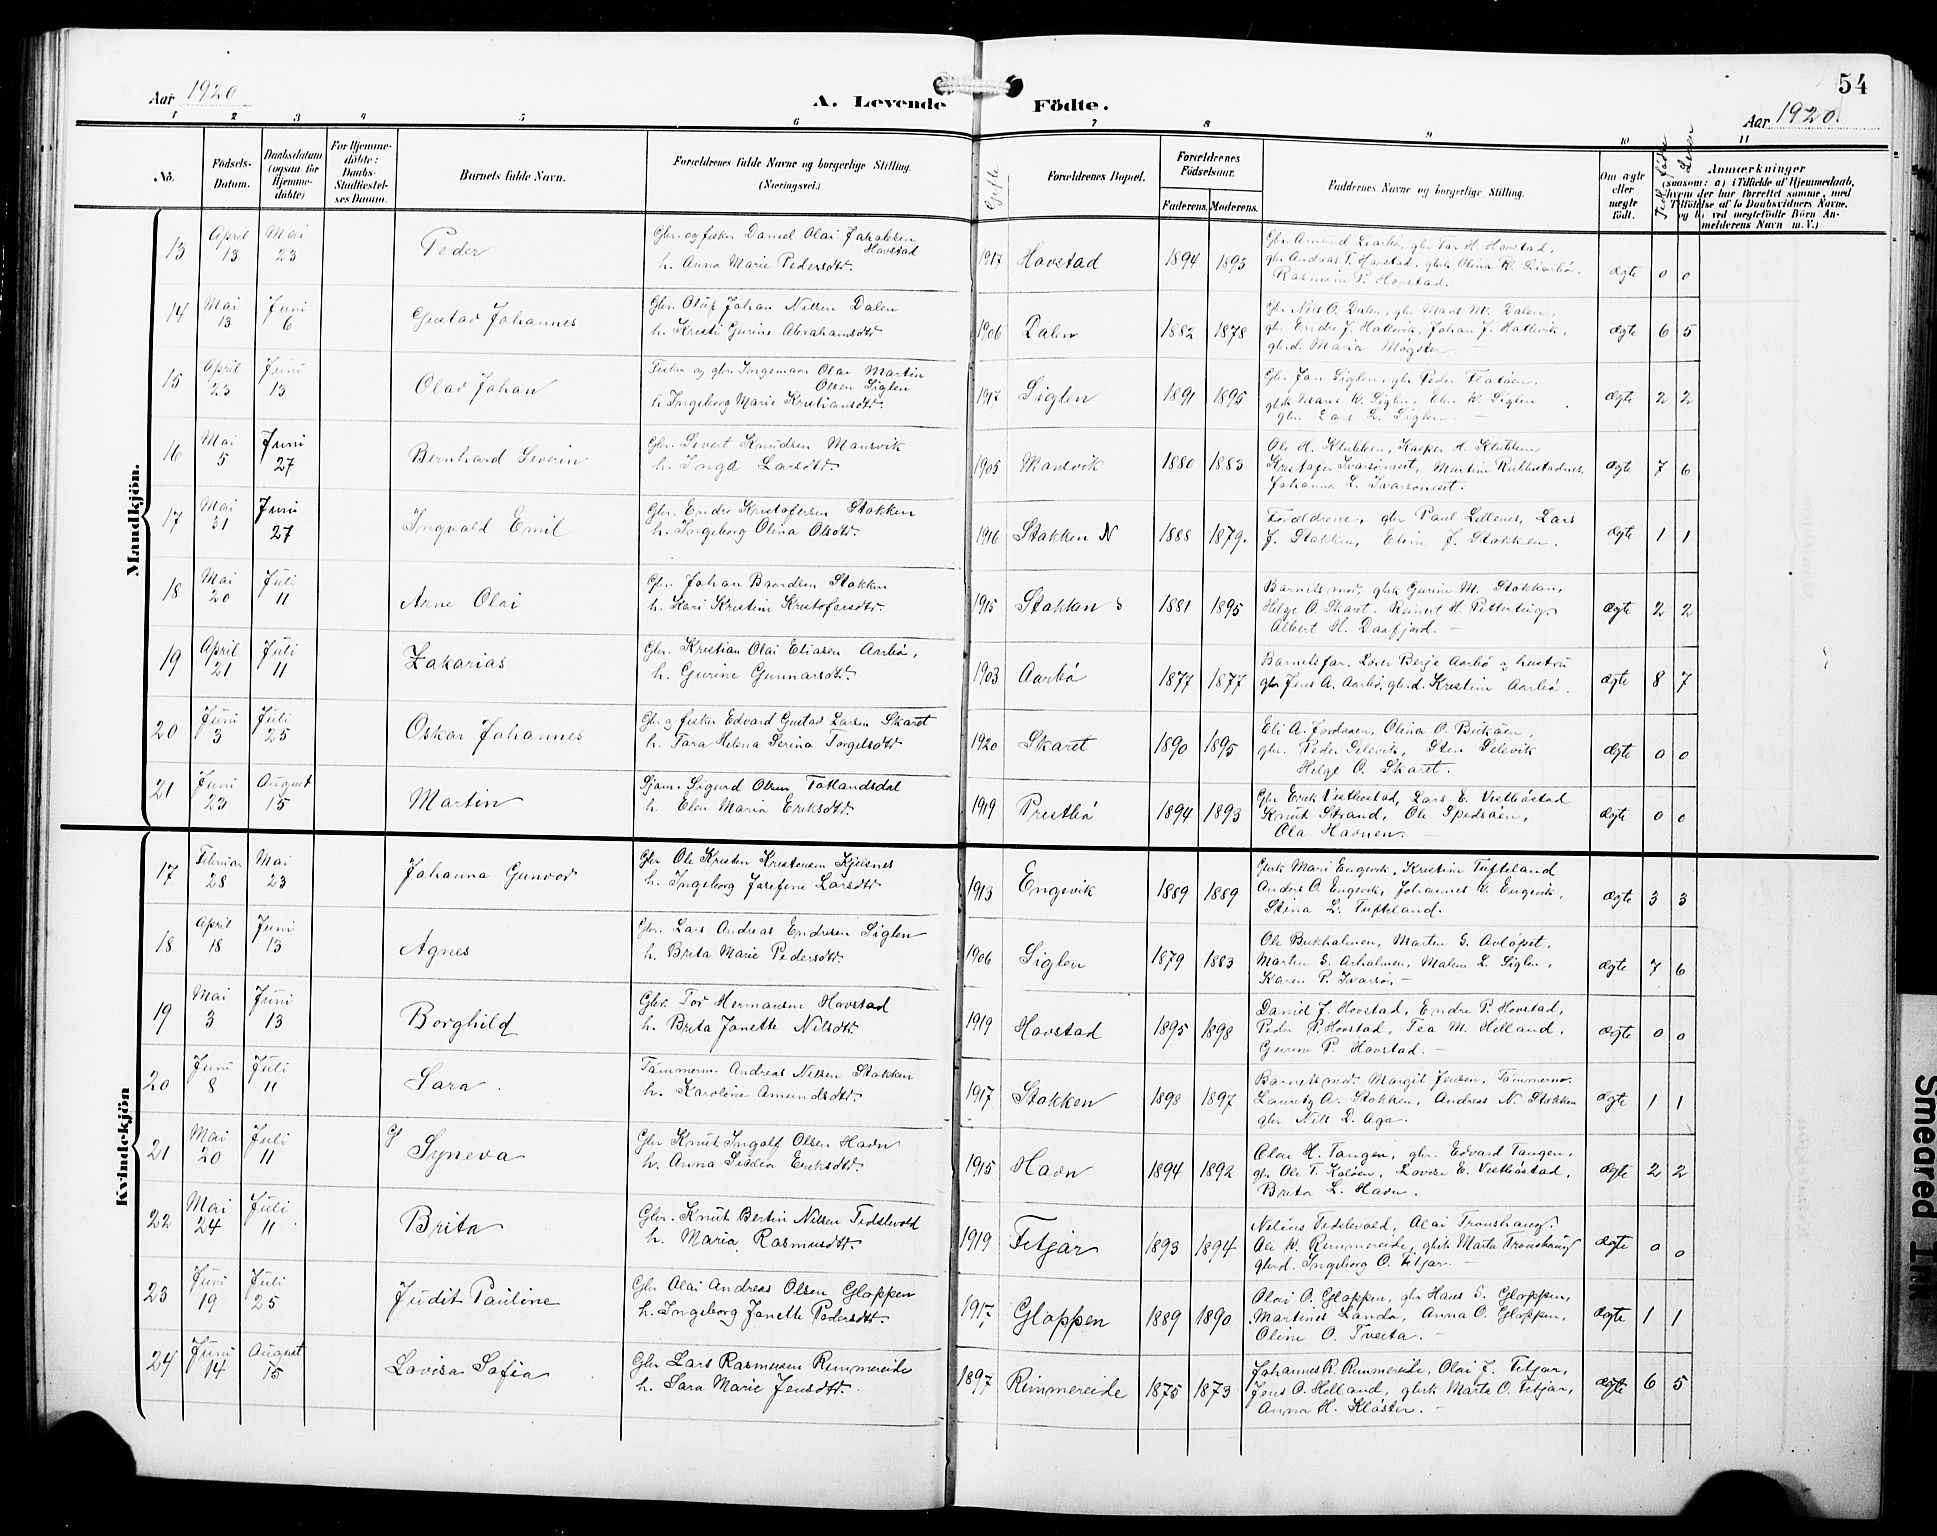 54
Aar 1920
A. Levende Födte.
Aar 1920.
1 2 3 4 5 6 7 8 9 10 11
No.
Födsels-
Datum.
Daabsdatum
(ogsaa for
Hjemme-
döbte)
For Hjemme-
döbte:
Daabs-
Stadfæstel-
ses Datum.
Barnets fulde Navn.
Forældrenes fulde Navne og borgerlige Stilling.
(Næringsvei.)
Gifte
Forældrenes Bopæl.
Forældrenes
Födselsaar.
Faderens. Moderens.
Faddernes Navne og borgerlige Stilling.
Om ægte
eller
uægte
födt.
Tidl. fødte
Lever
Anmærkninger
(saasom: a) i Tilfælde af Hjemmedaab,
hvem der har forrettet samme, med
Tilföielse af to Daabsvidners Navne,
og b) ved uægtefödte Börn An-
melderens Navn m. V.)
Mandkjön.
13 April 13 Mai 23 Peder
Gbr. og fisker Daniel Olai Jakobsen Hovstad
h. Anna Marie Pedersdtr.
1917 Hovstad 1894 1893
gbr. Andreas T. Hovstad,
Rasmine P. Hovstad.
ægte 0 0
14 Mai 13 Juni 6 Gustav Johannes
Gbr. Oluf Johan Nilsen Dalen
h. Kristi Gurine Abrahamsdtr.
1906 Dalen 1882 1878
Gbr. Nils O. Dalen, gbr. Mons M. Dalen,
gbr. Endre J. Hattevik, Johan J. Hattevik,
gbrd. Maria Møgster. -
ægte 6 5
15 April 23 Juni 13 Olav Johan
Fisker og gbr. Ingemar Olai Martin
Olsen Siglen
h. Ingeborg Marie Kristiansdtr.
1917 Siglen 1891 1895
Gbr. Jan Siglen, gbr. Peder Flatøen.
gbr. Lars L. Siglen. -
ægte 2 2
16 Mai 5 Juni 27 Bernhard Severin
Gbr. Severt Knudsen Mansvik
h. Inga Larsdtr.
1905 Mansvik 1880 1883
Ole H. Klubben, Kasper H. Klubben
Kristofer Ivarsøneset, Martine
Johanna L. Ivarsøneset.
ægte 7 6
17 Mai 31 Juni 27 Ingvald Emil
Gbr. Endre Kristofersen Stokken
h. Ingeborg Olina Olsdtr.
1916 Stokken N 1888 1879.
Forældrene, gbr. Paul Lillenes, Lars
J. Stokken, Eline J. Stokken.
ægte 1 1
18 Mai 20 Juli 11 Arne Olai
Gbr. Johan Baardsen Stokken
h. Kari Kristine Kristofersdtr.
1915 Stokken S 1881 1895
Barnets mor, gbrk Gurine M. Stokken,
Helge O. Skaret, Reinert H. Petterteig.
Albert H. Daafjord. -
ægte 2 2
19 April 21 Juli 11 Zakarias
Gbr. Kristian Olai Eliasen Aarbø,
h. Gurine Gunnarsdtr.
1903 Aarbø 1877 1877
Barnets far. Lærer Berje Aarbø og hustru
gbr. Jens A. Aarbø, gbrd. Kristine Aarbø.
ægte 8 7
20 Juni 3 Juli 25 Oskar Johannes
Gbr og fisker Edvard Gustav Larsen Skaret
h. Tara Helena Serina Torgelsdtr.
1920 Skaret 1890 1895
Eli A. Jordaaen, Olina O. Birkøen,
gbr. Peder Selevik, Sten Selevik
Helge O. Skaret.
ægte 0 0
21 Juni 23 August 15 Martin
Sjøm. Sigurd Olsen Totlandsdal
h. Elen Maria Eriksdtr.
1919 Prestbø 1894 1893
Gbr. Erik Vestbøstad, Lars E. Vestbøstad
Knut Strand, Ole Spidsøen,
Ola Havnen. -
ægte 0 0
Kvindekjön
17 Februar 28 Mai 23 Johanna Gunvor
Gbr Ole Kristen Kristensen Kjelsnes
h. Ingeborg Josefine Larsdtr.
1913 Engevik 1889 1889
Gbrk Mari Engevik, Kristine Tufteland
Anders O. Engevik, Johannes K. Engevik,
Stina L. Tufteland.
ægte 3 3
18 April 18 Juni 13 Agnes
Gbr. Lars Andreas Endresen Siglen
h. Brita Marie Pedersdtr.
1906 Siglen 1879 1883
Ole Birkholmen, Marten G. Avløpet,
Marten S. Arholmen, Malena L. Siglen,
Karen P. Ivarsø. -
ægte 7 6
19 Mai 3 Juni 13 Borghild
Gbr. Tor Hermansen Hovstad
h. Brita Janette Nilsdtr.
1919 Hovstad 1895 1898
Daniel J. Hovstad, Endre P. Hovstad,
Peder P. Hovstad, Tea M. Helland,
Gurine P. Hovstad. -
ægte 0 0
20 Juni 8 Juli 11 Sara.
Tømmerm. Andreas Nilsen Stokken
h. Karoline Amundsdtr.
1917 Stokken 1898 1897
Barnets mor. Margit Jensen, Tømmerm.
Lauritz A. Stokken, Andreas N. Stokken
gbr Nils D. Aga.
ægte 1 1
21 Mai 20 Juli 11 Syneva
Gbr Knut Ingolf Olsen Havn
h. Anna Sedea Eriksdtr.
1915 Havn 1894 1892
Olai H. Tangen, gbr. Edvard Tangen,
gbr. Ole T. Kaløen, Lovise E. Vestbøstad,
Brita L. Havn.
ægte 2 2
22 Mai 24 Juli 11 Brita
Gbr. Knut Bertin Nilsen Tidslevold
h. Maria Rasmusdtr.
1919 Fitjar 1893 1894
Nelius Tidslevold, Olai Transhaug.
Ole K. Rimmereide, gbrk Marta Transhaug
gbrd. Ingeborg O. Fitjar. -
ægte 0 0
23 Juni 19 Juli 25 Judit Pauline
Gbr Olai Andreas Olsen Gloppen
h. Ingeborg Janette Pedersdtr.
1917 Gloppen 1889 1890
Olai O. Gloppen, gbr Hans S. Gloppen,
Martines Landa, Anna O. Gloppen,
Oline O. Tveita. -
ægte 1 1
24 Juni 14 August 15 Lovisa Sofia
Gbr Lars Rasmusen Rimmereide
h. Sara Marie Jensdtr.
1897 Rimmereide 1875 1873
Johannes R. Rimmereide, Olai J. Fitjar,
Jens O. Helland, gbrk Marta O. Fitjar,
Anna H. Kloster. -
ægte 6 5
Smeared IN